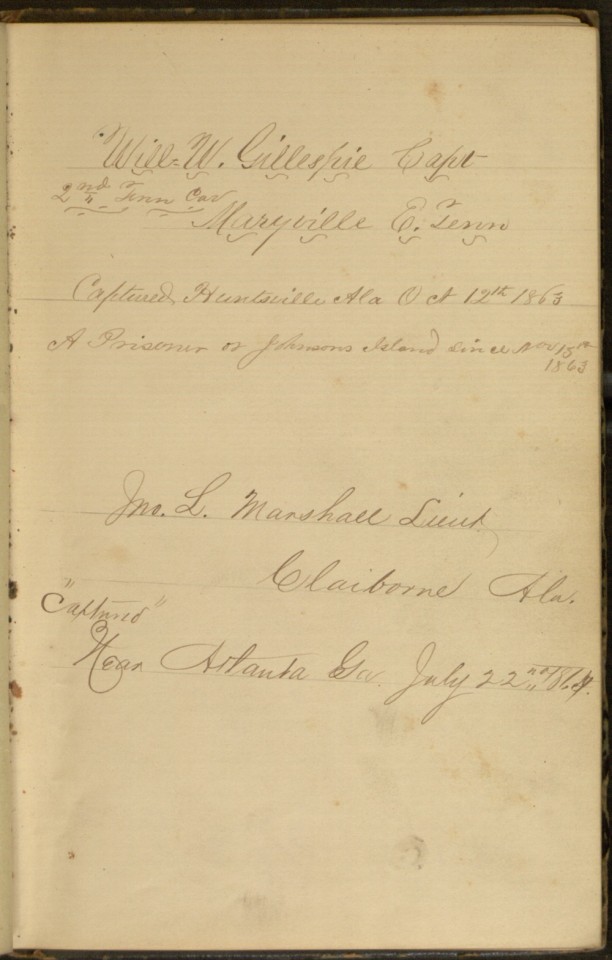 Will. W. Gillespie Capt
2nd Tenn Cav
Maryville E. Tenn
Captured Huntsville Ala Oct 12th 1863
A Prisoner on Johnsons Island since Nov 15th
1863
Jno. L. Marshall Lieut
Claiborne Ala.
"Captured"
Near Atlanta Ga. July 22nd 1864.